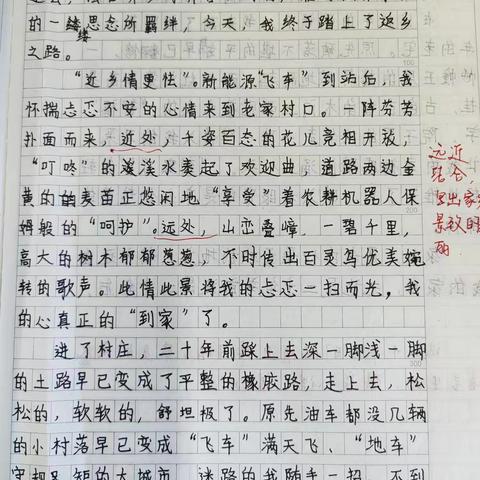 的一缕思念所羁绊，今天，我终于踏上了返乡
缕
之路。
100
“近乡情更怯”。新能源“飞车”到站后，我
怀揣忐忑不安的心情来到老家村口。一阵芬芳
扑面而来，近处，千姿百态的花儿竞相开放，
“叮咚”的溪水奏起了欢迎曲，道路两边金
黄的麦苗正悠闲地“享受”着农耕机器人保
200
姆般的“呵护”。远处，山峦叠嶂，一碧千里，
高大的树木郁郁葱葱，不时传出百灵鸟优美婉
转的歌声。此情此景将我的忐忑一扫而光，我
的心真正的“到家”了。
进了村庄，二十年前踩上去深一脚浅一脚
300
的土路早已变成了平整的橡胶路，走上去，松
松的，软软的，舒坦极了。原先油车都没几辆
的小村落早已变成“飞车”满天飞、“地车”
的大城市 迷路的我随手一招，不到
远近
结合，
写出家乡
景致的
丽